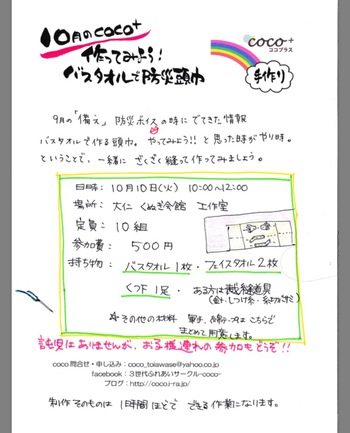 10月のcoco+
作ってみよう!
バスタオルで防災頭巾
coco+
ココプラス
手作り
9月の「備え」防災ボイスの時にでてきた情報
バスタオルで作る頭巾。やってみよう!!と思った時がやり時。
ということで、一緒に ざくざく縫って作ってみましょう。
日時: 10月10日(火) 10:00~12:00
場所: 大仁 くぬぎ会館 工作室
定員: 10組
参加費: 500円
持ち物: バスタオル1枚・フェイスタオル2枚
くつ下1足、ある方は裁縫道具
(針・しつけ糸・糸切ばさみ)
☆その他の材料
まとめて用意します。
託児はありませんが、お子様連れの参加もどうぞ!!
coco問合せ・申し込み:coco_toiawase@yahoo.co.jp
facebook:3世代ふれあいサークル-coco-
ブログ:http://coco.i-ra.jp/
制作そのものは 1時間ほどで できる作業になります。